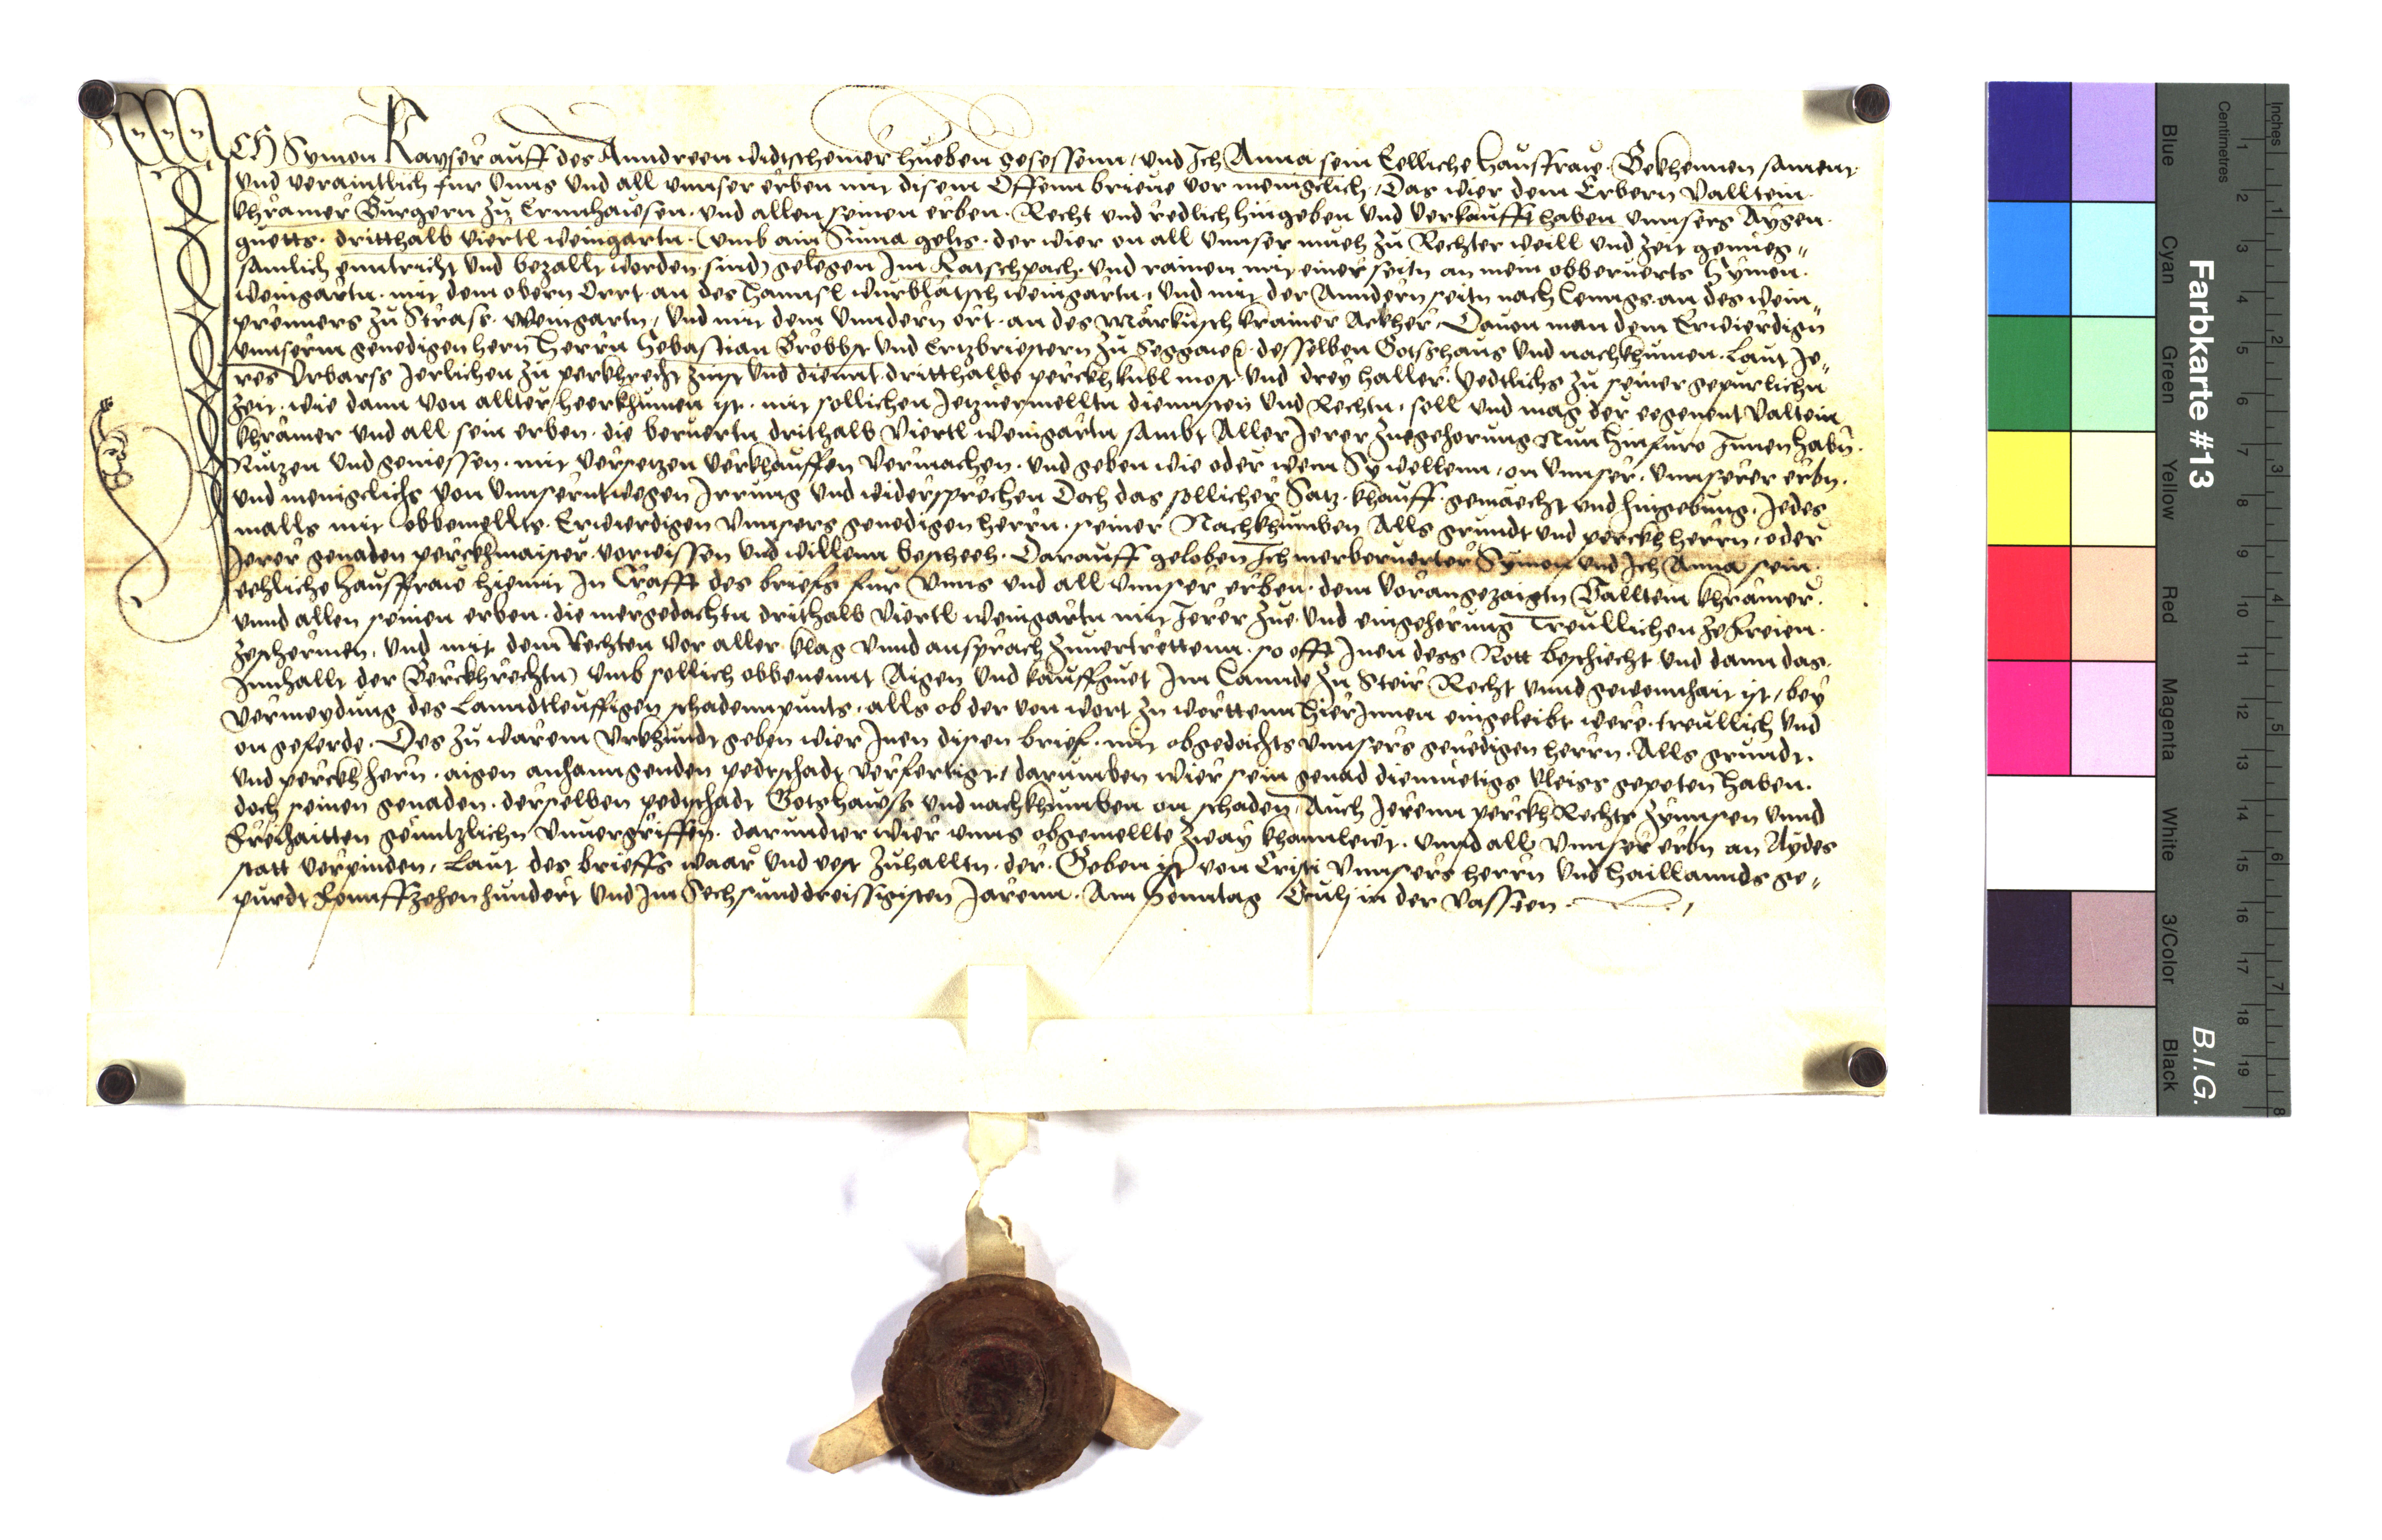 ICH Symon Kayser auff des Anndreen widtschemer hueben gesessenn / und Ich Anna sein Eelliche hausfraw. Bekhennen sament
und veraintlich für unns und all unnser erben mit disem Offenn brieve vor menigclich, Das wier dem Erbern Valltein
khramer Burgern zu Ernnhawsen und allen seinen erben. Recht und redlich hingeben und verkaufft haben unnsers Aygen
guetts. dritthalb viertl weingartn. (umb ain Suma gelts. der wier on all unnser mueh zu Rechter weill und zeit genueg"
samlich enntricht und bezallt worden sind) gelegen Im Katschpach. und rainen mit einer seitn an mein obberuerts Symon.
weingartn. mit dem obern Orrt. an des Hannsl weingartn, und mit der Anndern seitn nach Lenngs. an des wein"
prenners zu Strass. weingartn, und mit dem unndern ort. an des Markusch krainer Ackher. Davon man dem Erwierdign
unnserm genedigen hern Herrn Sebastian Brobbst und Ertzbriestern zu Seggaw. desselben Gotshaus und nachkhumen. Laut Ie"
res Urbarss Ierlichen zu perkhrecht zinst und diennt. dritthalbe perckh kübl most. und drey haller. yedtlichs zu seiner gepurlichn
zeit. wie dann von allter heerkhumen ist. mit sollichen Ietzuermelltn diennsten und Rechtn. soll und mag der eegenent Valtein
khramer und all sein erben. die beruertn drithalb viertl weingartn sambt Aller Ierer zuegehorung Nun hinfuro Innen habn.
Nutzen und geniessen. mit versetzen verkhauffen vermachen. und geben wie oder wem Sy wellenn. on unnser. unnserer erbn.
und menigclichs von unnserntwegen Irrung und widersprechen Doch das sollicher Satz. khauff. gemäecht und hingebung. Iedes
malls mit obbemellts. Erwierdigen unnsers genedigen herrn. seiner Nachkhumben Alls grundt und perckh herrn, oder
Ierer genaden perckhmaister. vorwissen und willenn bescheeh. Darauff geloben Ich merberuerter Symon und Ich Anna sein.
eehliche hausfraw hiemit In Crafft des briefs für unns und all unnser erben. dem vorangezaigtn Valltein khramer.
unnd allen seinen erben. die mergedachtn drithalb viertl weingartn mit Ierer zue. und eingehorung Treullichen ze freien.
zeschermen, und mit dem Rechten vor aller klag unnd ansprach zuvertrettenn. so offt Inen dess Nott beschiecht und dann das.
Innhallt der Perckhrechtn) umb sollich obbenennt Aigen und kauffguet Im Lannde zu Steir Recht unnd gewonnhait ist / bey
vermeydung des Lanndtleuffigen schadennpunts. alls ob der von wort zu worttenn hierInnen eingeleibt were. treullich und
on geferde. Des zu warem Urkhundt geben wier Inen disen brief. mit obgedachts unnsers genedigen herrn. Alls grundt.
und perckh hern. aigen anhanngenden pedtschadt verfertigt, darumben wier sein genad dienmüetigs vleiss gepeten haben.
doch seinen genaden. derselben pedtschadt Gotshawss und nachkhumben on schaden, Auch Ierenn perckh Rechts zynnsen unnd
freihaitten genntzlichn unvergriffen. darundter wier unns obgemellte zway khannlewt. unnd all unnser erbn an Aydes
statt verpinden, Laut des brieffs waar und vest zuhalltn. der. Geben ist von Cristi unnsers herrn und haillannds ge"
purdt Fonnffzehenhundert und Im Sechsunddreissigisten Iarenn. Am Sonntag Oculj in der Vassten.
Farbkarte #13
B.I.G.
Inches
Centimetres
1 2 3 4 5 6 7 8
1 2 3 4 5 6 7 8 9 10 11 12 13 14 15 16 17 18 19
Blue
Cyan
Green
Yellow
Red
Magenta
White
3/Color
Black